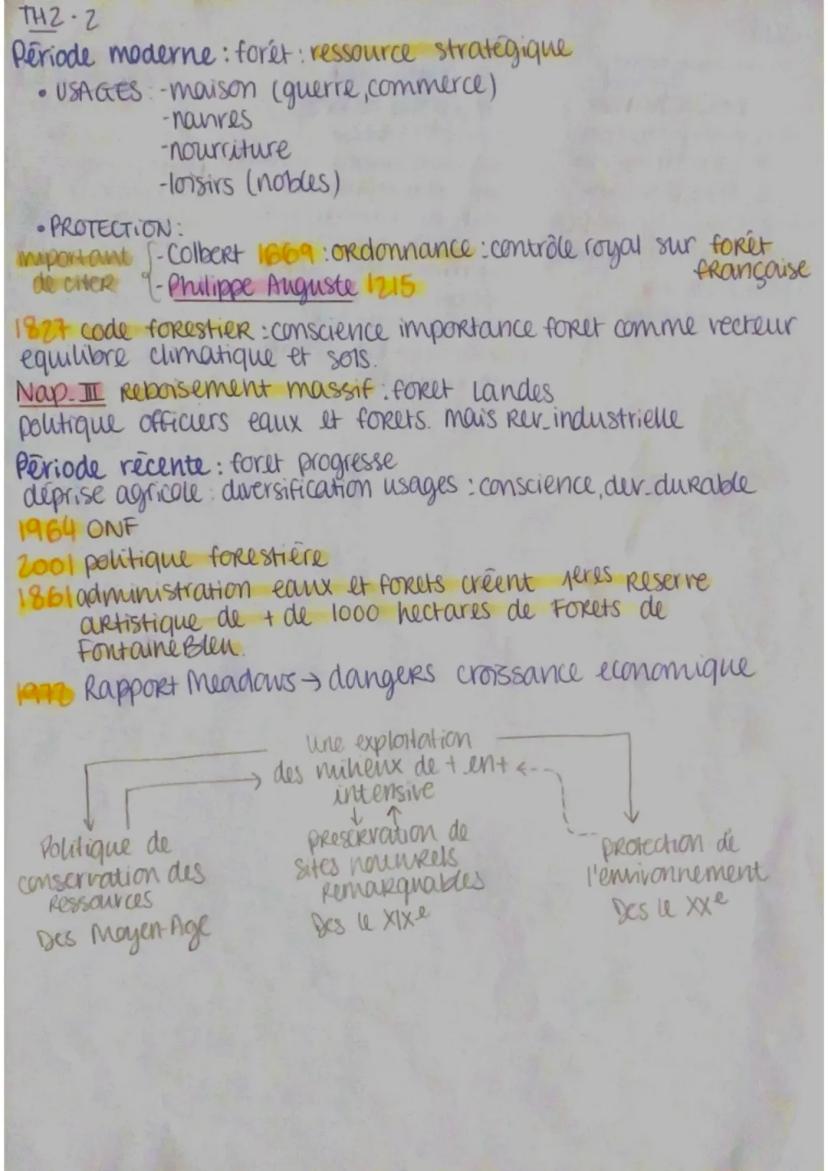 TH2.2
Période moderne : forêt : ressource stratégique
• USAGES : -maison (guerre, commerce)
-navires
-nourriture
-loisirs (nobles)
• PROTECTION :
important de citer
-Colbert 1669 : ordonnance : contrôle royal sur forêt française
-Philippe Auguste 1215
1827 code forestier : conscience importance foret comme vecteur
equilibre climatique et sols.
Nap. III Reboisement massif : foret Landes
politique officiers eaux et forets. mais Rev_industrielle
Période récente : foret progresse
déprise agricole : diversification usages : conscience, dev_durable
1964 ONF
2001 politique forestière
1861 administration eaux et forets créent 1eres Reserve
artistique de + de 1000 hectares de Forets de
FontaineBleu.
Rapport Meadows → dangers croissance economique
une exploitation
des milieux de + en +
intensive
Politique de
conservation des
Ressources
Des Moyen-Age
preservation de
sites naturels
Remarquables
Des le XIXe
protection de
l'environnement
Des le XXe